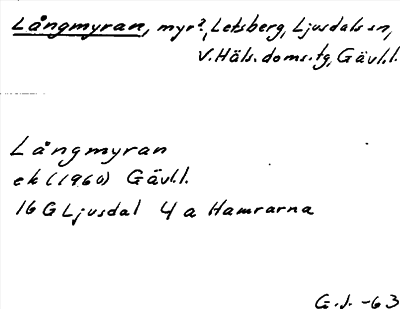 Långmyran, myr?, Letsberg, Ljusdals sn,
V. Häls. doms.tg, Gävl.l.
Långmyran
ek (1960) Gävl.l.
16 G Ljusdal 4 a Hamrarna
G.J. -63